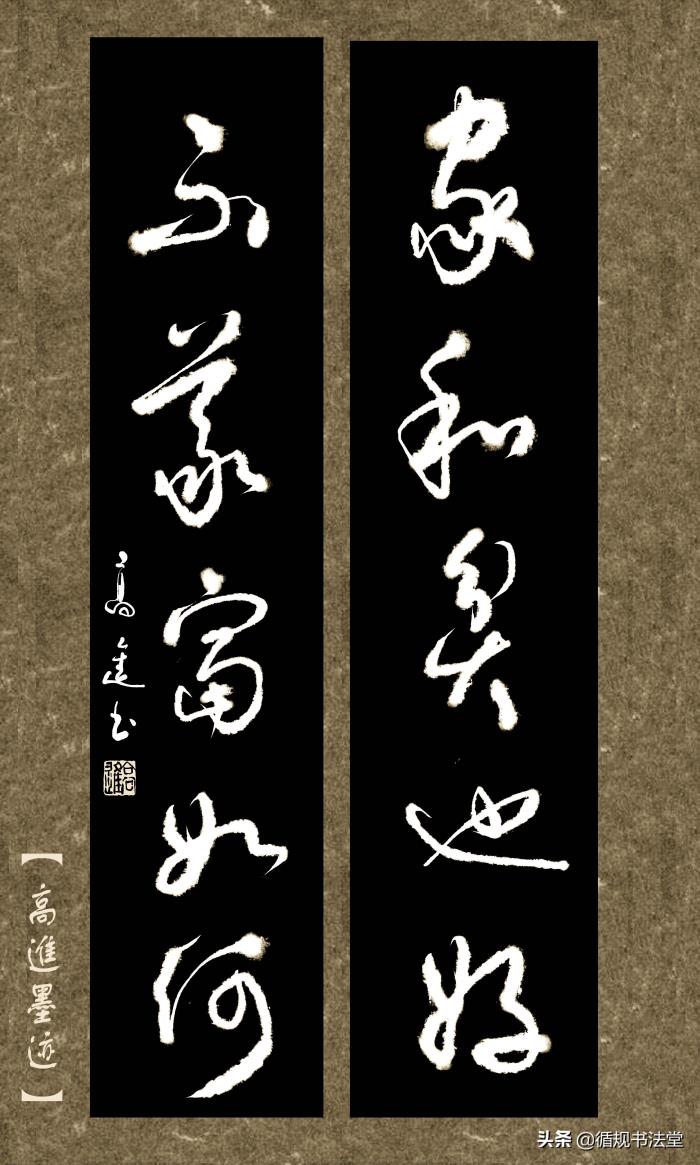 家和貧也好
不義富如何
高進书
【高進墨迹】
头条 @循规书法堂